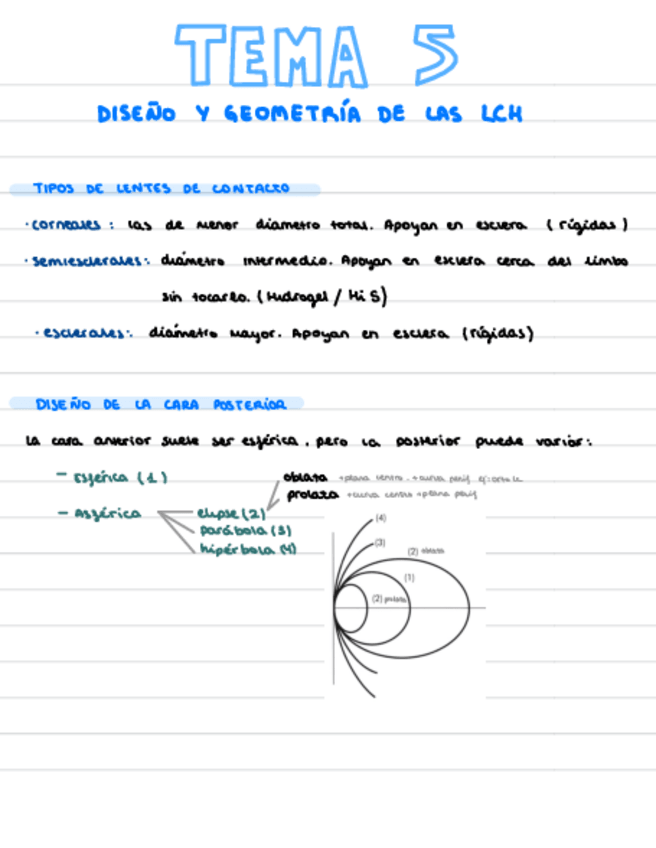 TEMA 5
DISEÑO Y GEOMETRÍA DE LAS LCH
TIPOS DE LENTES DE CONTACTO
· corneales : las de menor diámetro total. Apoyan en esclera ( rígidas )
· semiesclerales: diámetro intermedio. Apoyan en esclera cerca del limbo
sin tocarlo. (Hidrogel / Hi S)
· esclerales: diámetro mayor. Apoyan en esclera (rígidas)
DISEÑO DE LA CARA POSTERIOR
La cara anterior suele ser esférica, pero la posterior puede variar:
- Esférica (1)
oblata +plana centro, +curva perif
prolata +curva centro +plana perif
- Asférica
elipse (2)
parábola (3)
hipérbola (4)
(4)
(3)
(2) oblata
(1)
(2) prolata